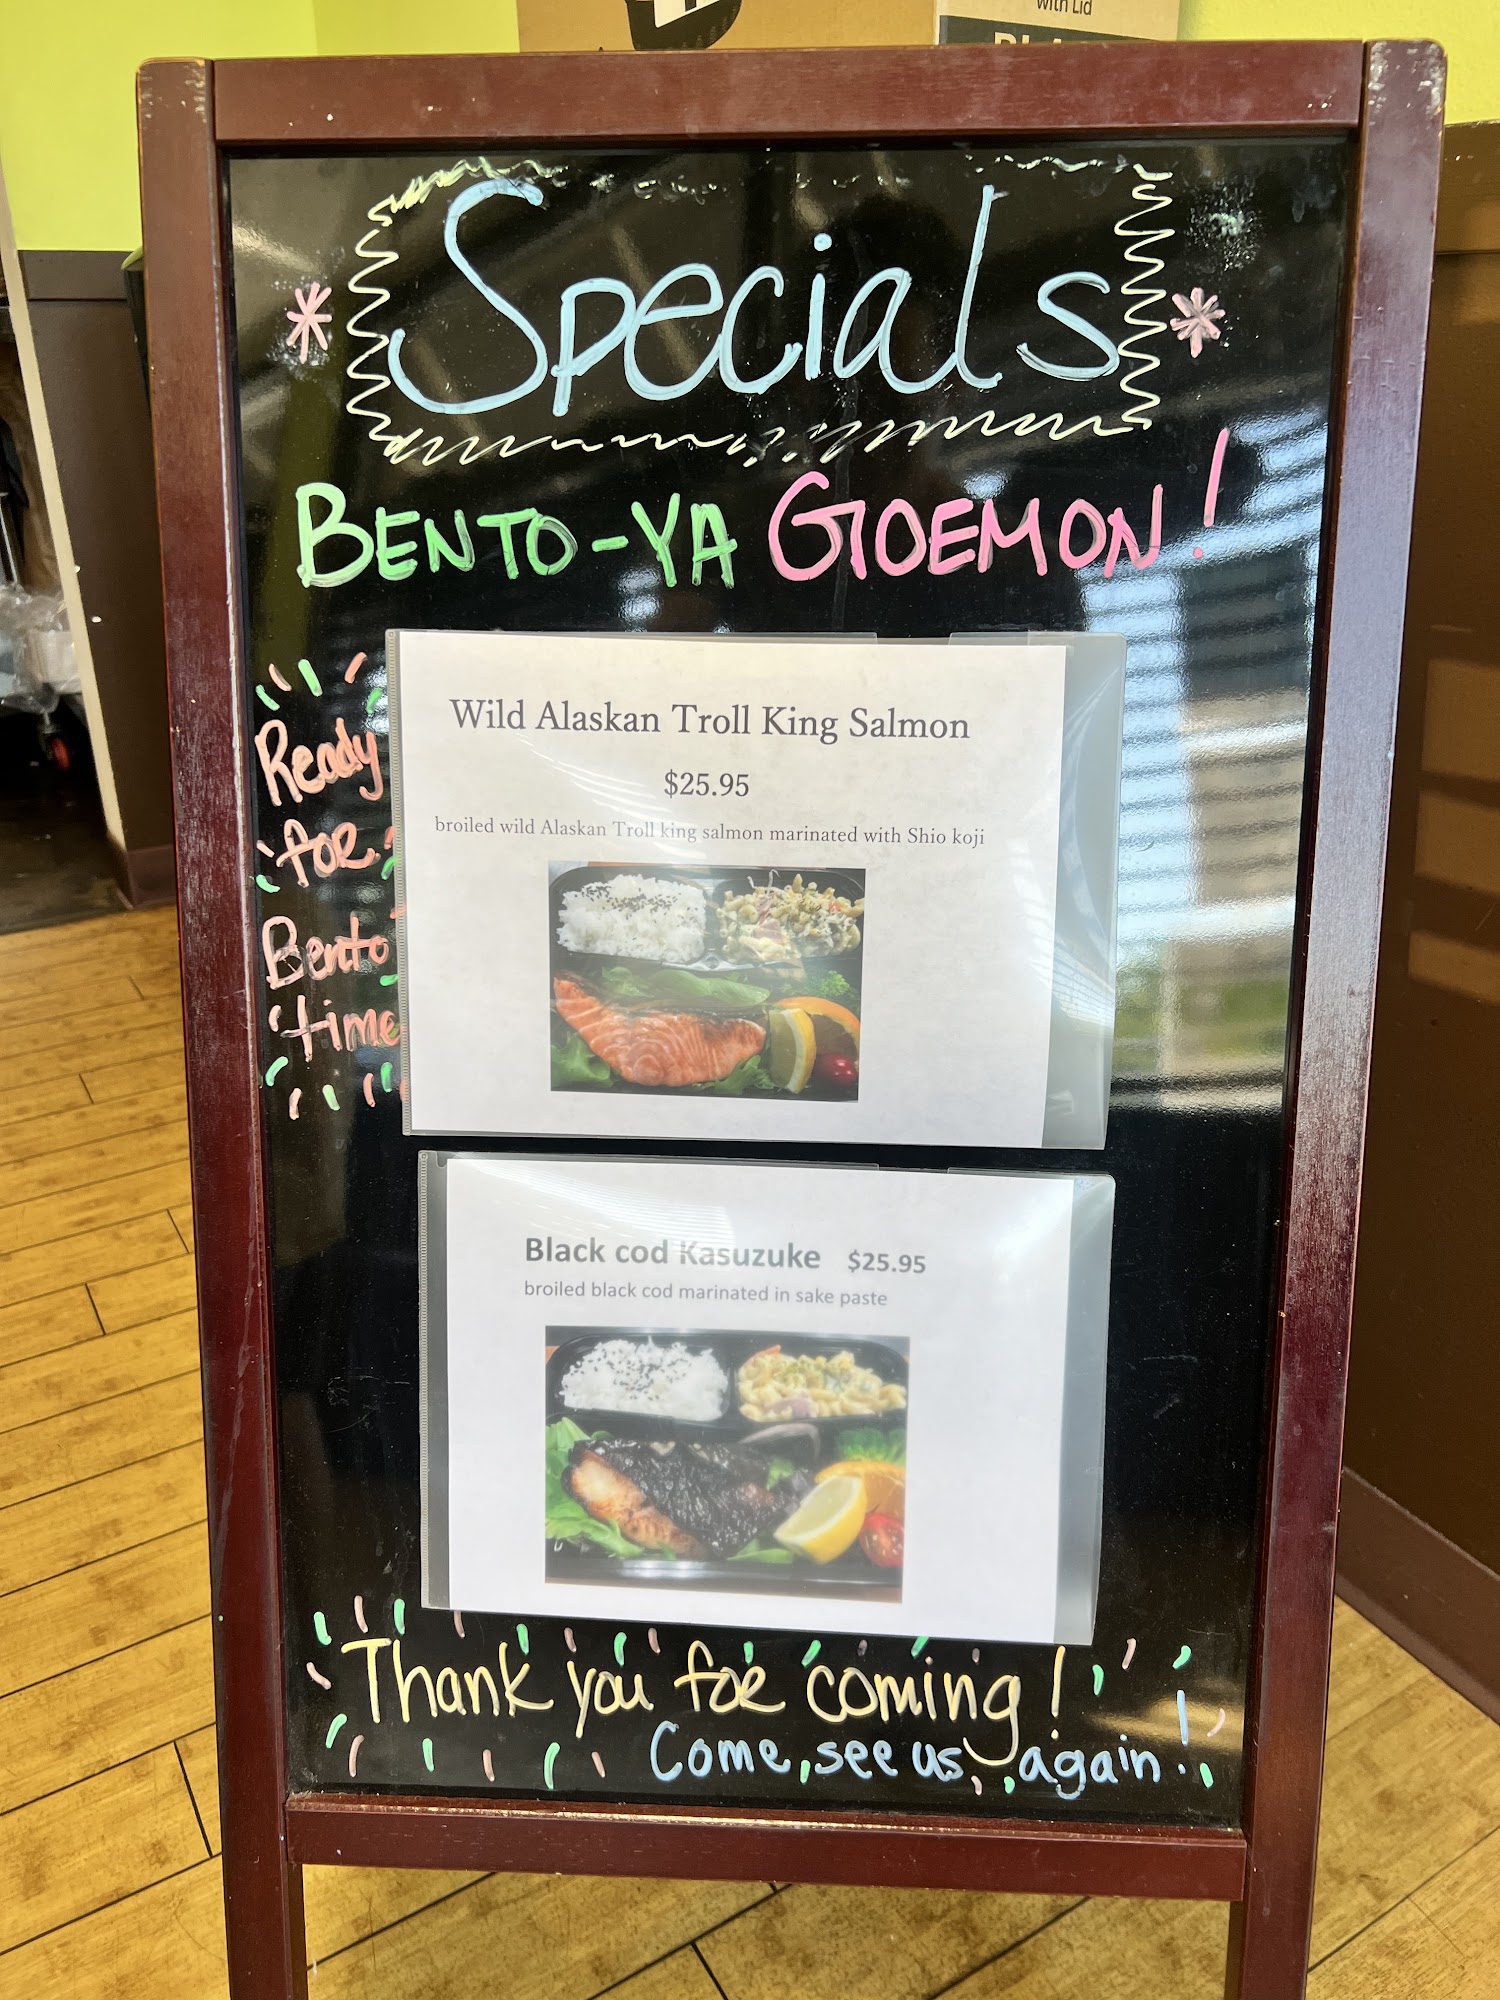 with Lid
Specials
BENTO-YA GOEMON!
Ready
for
Bento
time
Wild Alaskan Troll King Salmon
$25.95
broiled wild Alaskan Troll king salmon marinated with Shio koji
Black cod Kasuzuke $25.95
broiled black cod marinated in sake paste
Thank you for coming!
Come see us again!